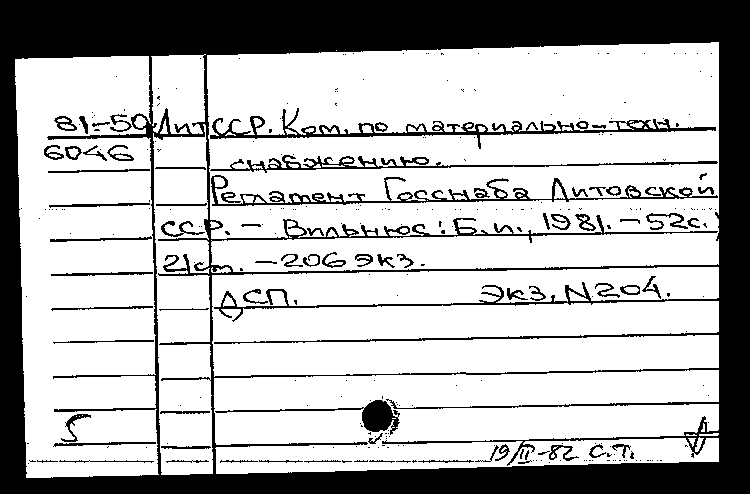 81-50 ЛитССР. Ком. по материально-техн.
6046 снабжению.
Регламент Госснаба Литовской
ССР. – Вильнюс: Б.и., 1981. – 52с.;
21см. – 206 экз.
ДСП. Экз. N204.
5
19/II-82 С.Т.